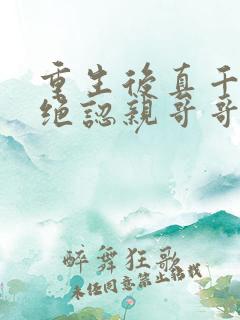 重生後真千
绝認親哥哥
醉舞狂歌
未经同意禁止转载